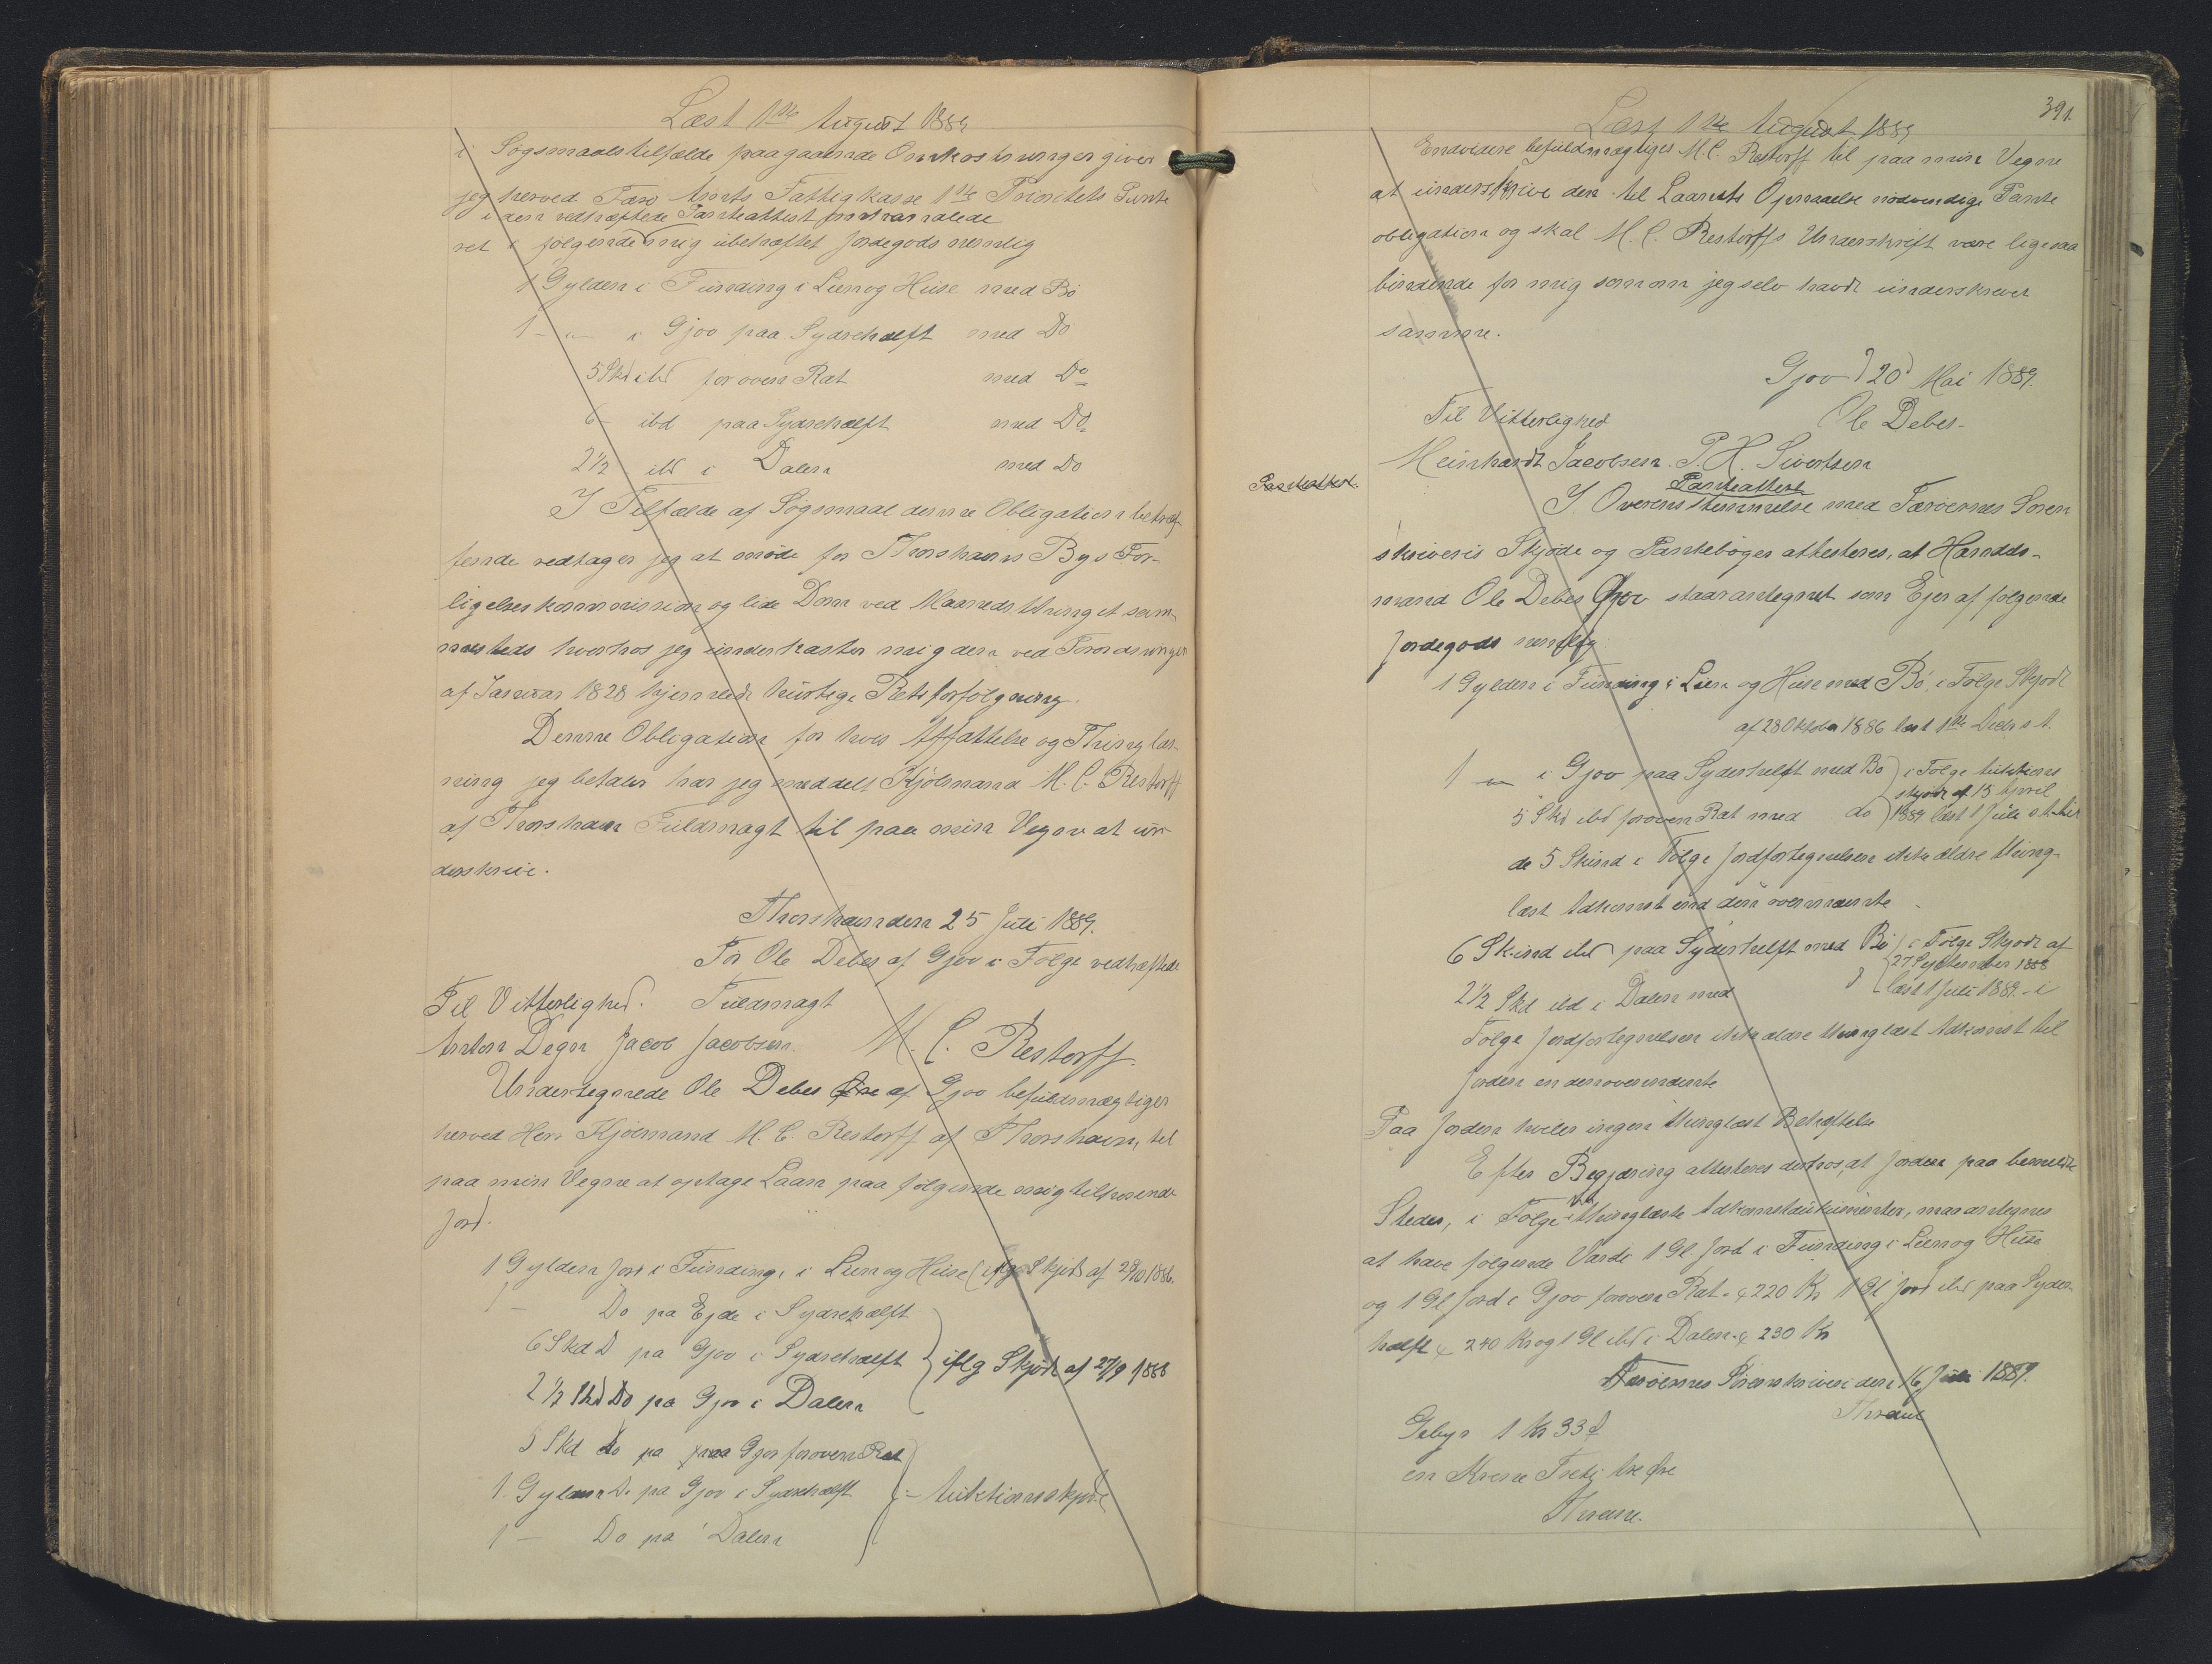 Læst 1ste August 1889
i Søgsmaalstilfælde paagaaende Omkostninger giver
jeg herved Færø Amts Fattigkasse 1ste Prioritets Pante
i den vedhæftede Panteattest
ret i følgende mig ubehæftet Jordegods nemlig
1 Gylden i Funding i Lien og Huse med Bø
1 - " - i Gjov paa Sydrehælft med Do
5 Skd ibd for oven Ræt med Do
6 - ibd paa Sydrehælft med Do
2 1/2 - ibd i Dalen med Do
I Tilfælde af Søgsmaal denne Obligation betræf-
fende vedtager jeg at møde for Thorshavns Bys For-
ligelseskommission og lide Dom ved Maanedsthinget sam-
mesteds hvorhos jeg underkaster mig den ved Forordningen
af Januar 1828 hjemlede hurtige Retsforfølgning.
Denne Obligation for hvis Affattelse og Thinglæs-
ning jeg betaler har jeg meddelt Kjøbmand M. C. Restorff
af Thorshavn Fuldmagt til paa min Vegne at un-
derskrive.
Thorshavn den 25 Juli 1889.
For Ole Debes af Gjov i Følge vedhæftede
Til Vitterlighed. Fuldmagt
Anton Degn Jacob Jacobsen. M. C. Restorff.
Undertegnede Ole Debes af Gjov befuldmægtiger
herved Herr Kjøbmand M. C. Restorff af Thorshavn, til
paa min Vegne at optage Laan paa følgende mig tilhørende
Jord.
1 Gylden Jord i Funding, i Lien og Huse (iflg Skjøde af 28/10 1886.
1 - Do pa Ejde i Sydrehælft
6 Skd D pa Gjov i Sydrehælft } iflg Skjøde af 27/9 1888
2 1/2 Skd Do pa Gjov i Dalen
5 Skd do pa paa Gjov foroven Ræt
1 Gylden Do pa Gjov i Sydrehælft } - Auktionsskjøde
1 - Do pa Dalen
391.
Læst 1ste August 1889
Endvidere befuldmægtiges M. C. Restorff til paa min Vegne
at underskrive den til Laanets Opnaaelse nødvendige Pante
obligation og skal M. C. Restorffs Underskrift være ligesaa
bindende for mig som om jeg selv havde underskrevet
samme.
Gjov d 20d Mai 1889.
Til Vitterlighed Ole Debes -
Meinhardt Jacobsen. P. H. Sivertsen
Panteattest.
Panteattest
I Overensstemmelse med Færøernes Soren
skriveris Skjøde og Pantebøger attesteres, at Handels-
mand Ole Debes Gjov staar antegnet som Ejer af følgende
Jordegods nemlig
1 Gylden i Funding i Lien og Huse med Bø, i Følge Skjøde
af 28 Oktober 1886 læst 1ste Decbr s. A.
1 - " - i Gjov paa Sydrehælft med Bø } i Følge Auktions
skjøde af 15 April
5 Skd ibd foroven Ræt med do } 1889 læst 1 Juli s. A. til
de 5 Skind i Følge Jordfortegnelsen ikke ældre thing-
læst Adkomst end den ovennævnte
6 Skind ibd paa Sydrehelft med Bø } i Følge Skjøde af
27 September 1888
2 1/2 Skd ibd i Dalen med } læst 1 Juli 1889 - i
Følge Jordfortegnelsen ikke ældre thinglæst Adkomst til
Jorden en den ovennævnte
Paa Jorden hviler ingen thinglæst Behæftelse
Efter Begjæring attesteres derhos, at Jorden paa bemeldte
Steder, i Følge thinglæste Adkomstdokumenter, maa antegnes
at have følgende Værdi 1 Gl Jord i Funding i Lien og Huse
og 1 Gl Jord i Gjov foroven Ræt à 220 Kr 1 Gl Jord ibd paa Sydre
hælft à 240 Kr og 1 Gl ibd i Dalen à 230 Kr
Færøernes Sorenskriveri den 16 Juli 1889.
Gebyr 1 Kr 33 Ø
en Krone Tretj tre Øre